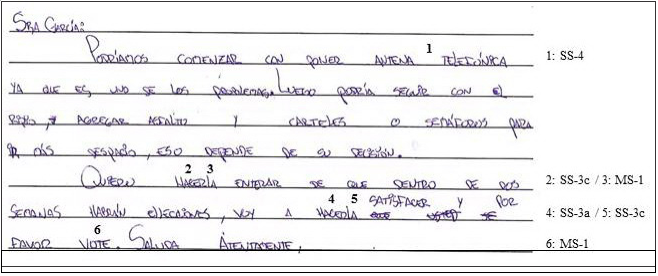 SRA GARCÍA:
PODRÍAMOS COMENZAR CON PONER ANTENA 1 TELEFÓNICA 1: SS-4
YA QUE ES UNO DE LOS PROBLEMAS. LUEGO PODRÍA SEGUIR CON EL
AGREGAR ASFALTO Y CARTELES O SEMÁFOROS PARA
IR MÁS DESPACIO, ESO DEPENDE DE SU DECISIÓN.
QUIERO 2 3 HACERLA ENTERAR DE QUE DENTRO DE DOS 2: SS-3c / 3: MS-1
SEMANAS HABRÁN ELECCIONES, VOY A 4 5 HACERLA SATISFACER Y POR 4: SS-3a / 5: SS-3c
FAVOR 6 VOTE. SALUDA ATENTAMENTE, 6: MS-1